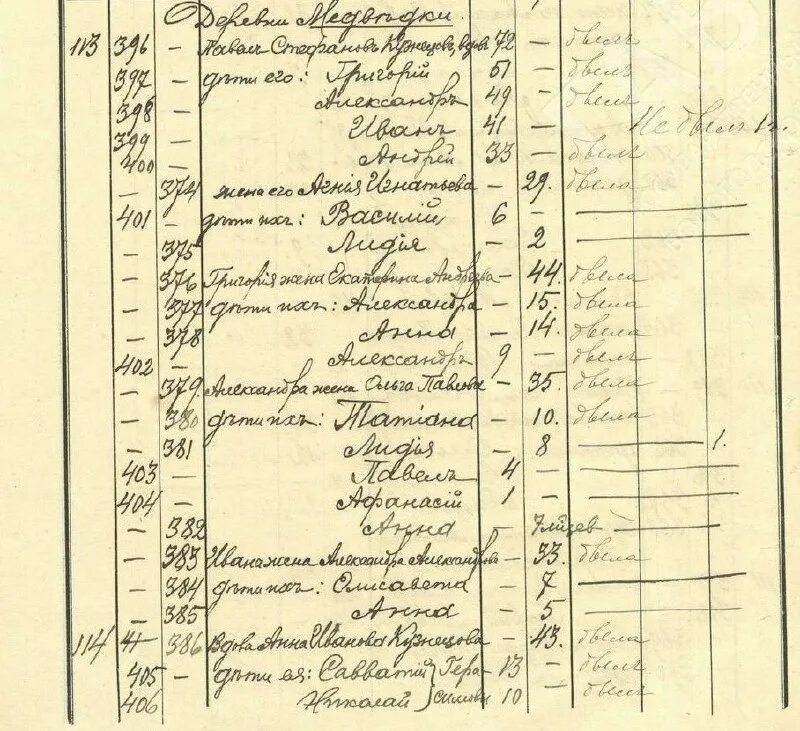 Деревни Медвѣдки.
113 396 — Павелъ Стефановъ Кузнецовъ, вдовъ 72 — бвелъ
397 — дѣти его: Григорій 51 — бвелъ
398 — Александръ 49 — бвелъ
399 — Иванъ 41 — Не бвелъ 1 г.
400 — Андрей 33 — бвелъ
— 374 жена его Агнія Игнатьева — 29. бвела
401 — дѣти ихъ: Василій 6 —
— 375 Лидія — 2
— 376 Григорія жена Екатерина Андреева — 44. бвела
— 377 дѣти ихъ: Александра — 15. бвела
— 378 Анна — 14. бвела
402 — Александръ 9 — бвелъ
— 379 Александра жена Ольга Павлова — 35. бвела
— 380 дѣти ихъ: Татіана — 10. бвела
— 381 Лидія — 8 1.
403 — Павелъ 4 —
404 — Афанасій 1 —
— 382 Анна — 7 мѣсяцев
— 383 Ивана жена Александра Александрова — 33. бвела
— 384 дѣти ихъ: Елисавета — 7
— 385 Анна — 5
114 — 386 Вдова Анна Иванова Кузнецова — 43. бвела
405 — дѣти ея: Савватій Гера- 13 — бвелъ
406 Николай симовы 10 — бвелъ